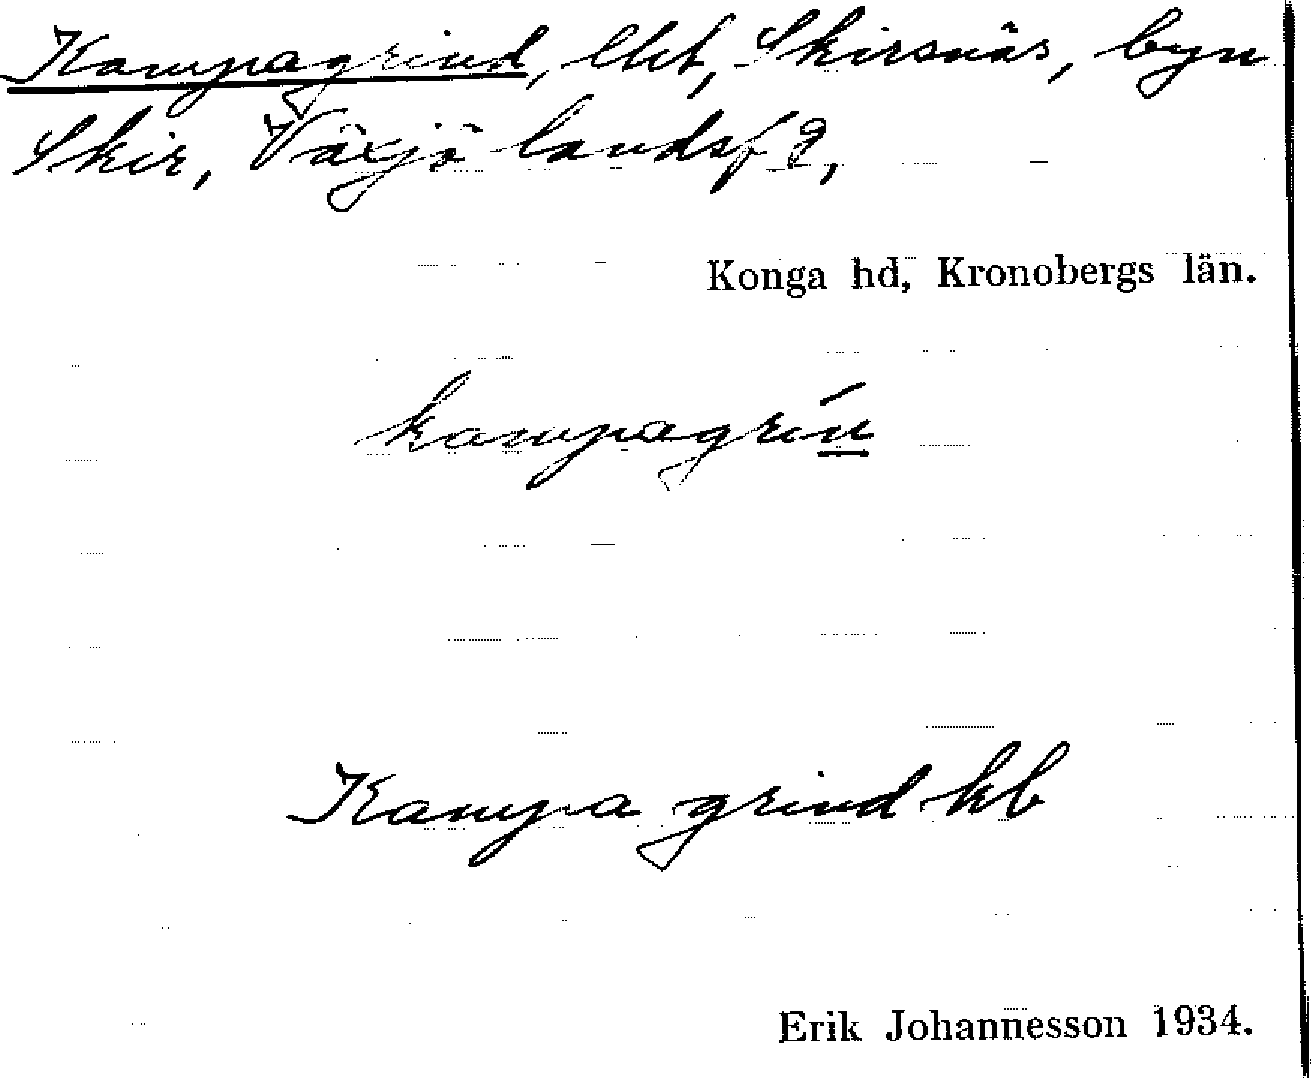 Kampagrind, lht, Skirsnäs, byn
Skir, Växjö landsf g,
Konga hd, Kronobergs län.
kampagrín
Kampa grind kb
Erik Johannesson 1934.